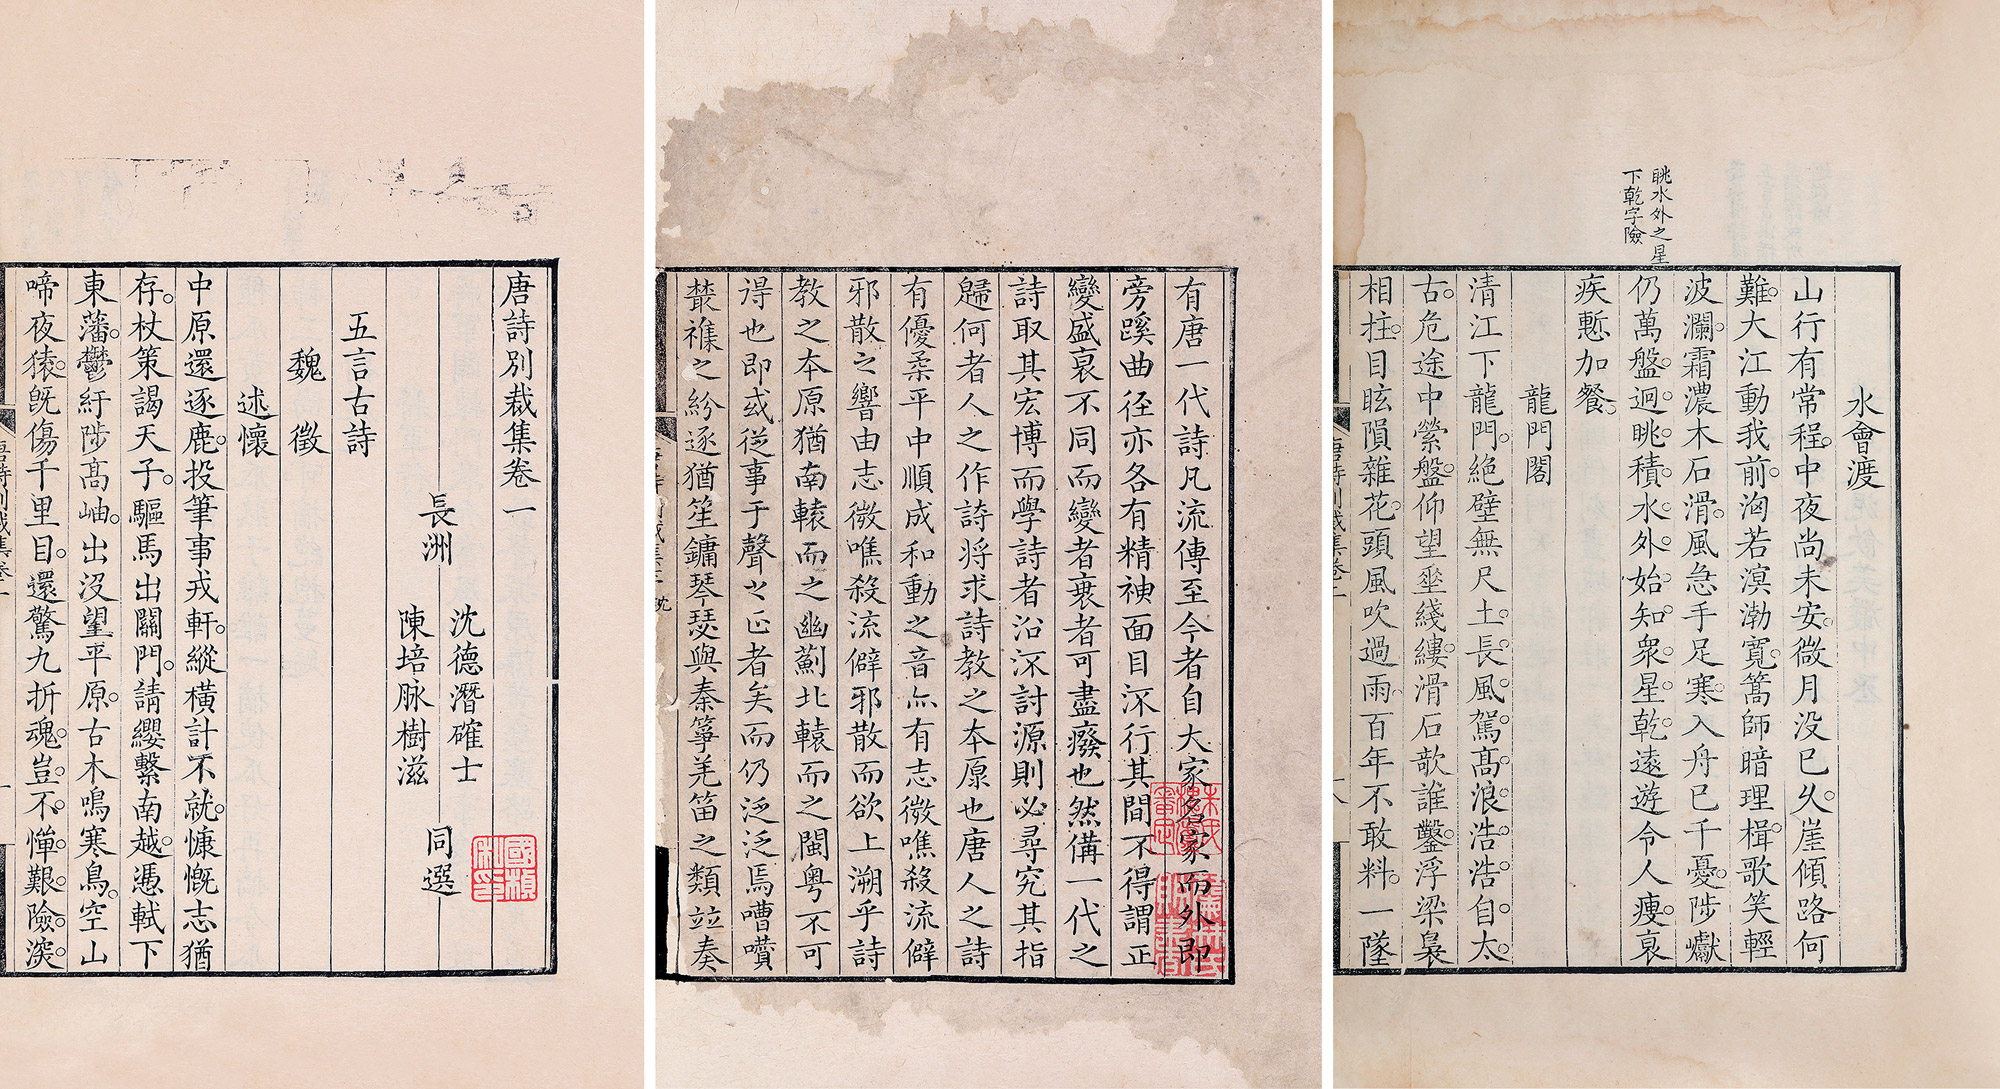 唐詩別裁集卷一
長洲 沈德潛確士 同選
陳培脉樹滋
五言古詩
魏 徵
述懷
中原還逐鹿投筆事戎軒縱橫計不就慷慨志猶
存杖策謁天子驅馬出關門請纓繫南越憑軾下
東藩鬱紆陟高岫出沒望平原古木鳴寒鳥空山
啼夜猿旣傷千里目還驚九折魂豈不憚艱險深
有唐一代詩凡流傳至今者自大家名家而外即
旁蹊曲徑亦各有精神面目流行其間不得謂正
變盛衰不同而變者衰者可盡廢也然備一代之
詩取其宏博而學詩者沿流討源則必尋究其指
歸何者人之作詩將求詩教之本原也唐人之詩
有優柔平中順成和動之音亦有志微噍殺流僻
邪散之響由志微噍殺流僻邪散而欲上溯乎詩
教之本原猶南轅而之幽薊北轅而之閩粵不可
得也即或從事于聲之正者矣而仍泛泛焉嘈囋
叢襍之紛逐猶笙鏞琴瑟與秦箏羌笛之類竝奏
水會渡
山行有常程中夜尚未安微月没已久崖傾路何
難大江動我前洶若溟渤寬篙師暗理楫歌笑輕
波瀾霜濃木石滑風急手足寒入舟已千憂陟巘
仍萬盤迥眺積水外始知衆星乾遠遊令人瘦衰
疾慙加餐
眺水外之星
下乾字險
龍門閣
清江下龍門絕壁無尺土長風駕高浪浩浩自太
古危途中縈盤仰望垂綫縷滑石欹誰鑿浮梁裊
相拄目眩隕雜花頭風吹過雨百年不敢料一墜